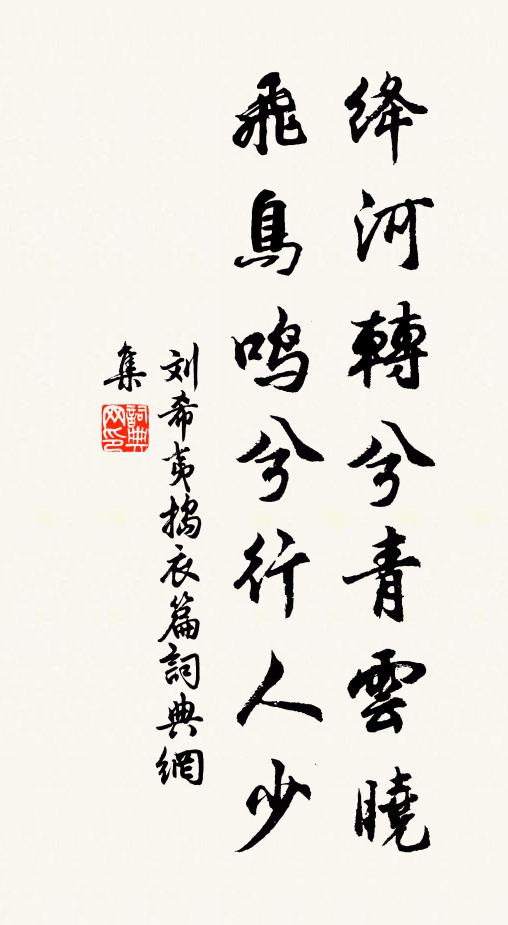 绛河轉兮青雲曉
飛鳥鳴兮行人少
刘希夷搗衣篇詞典網
集
詞典网印